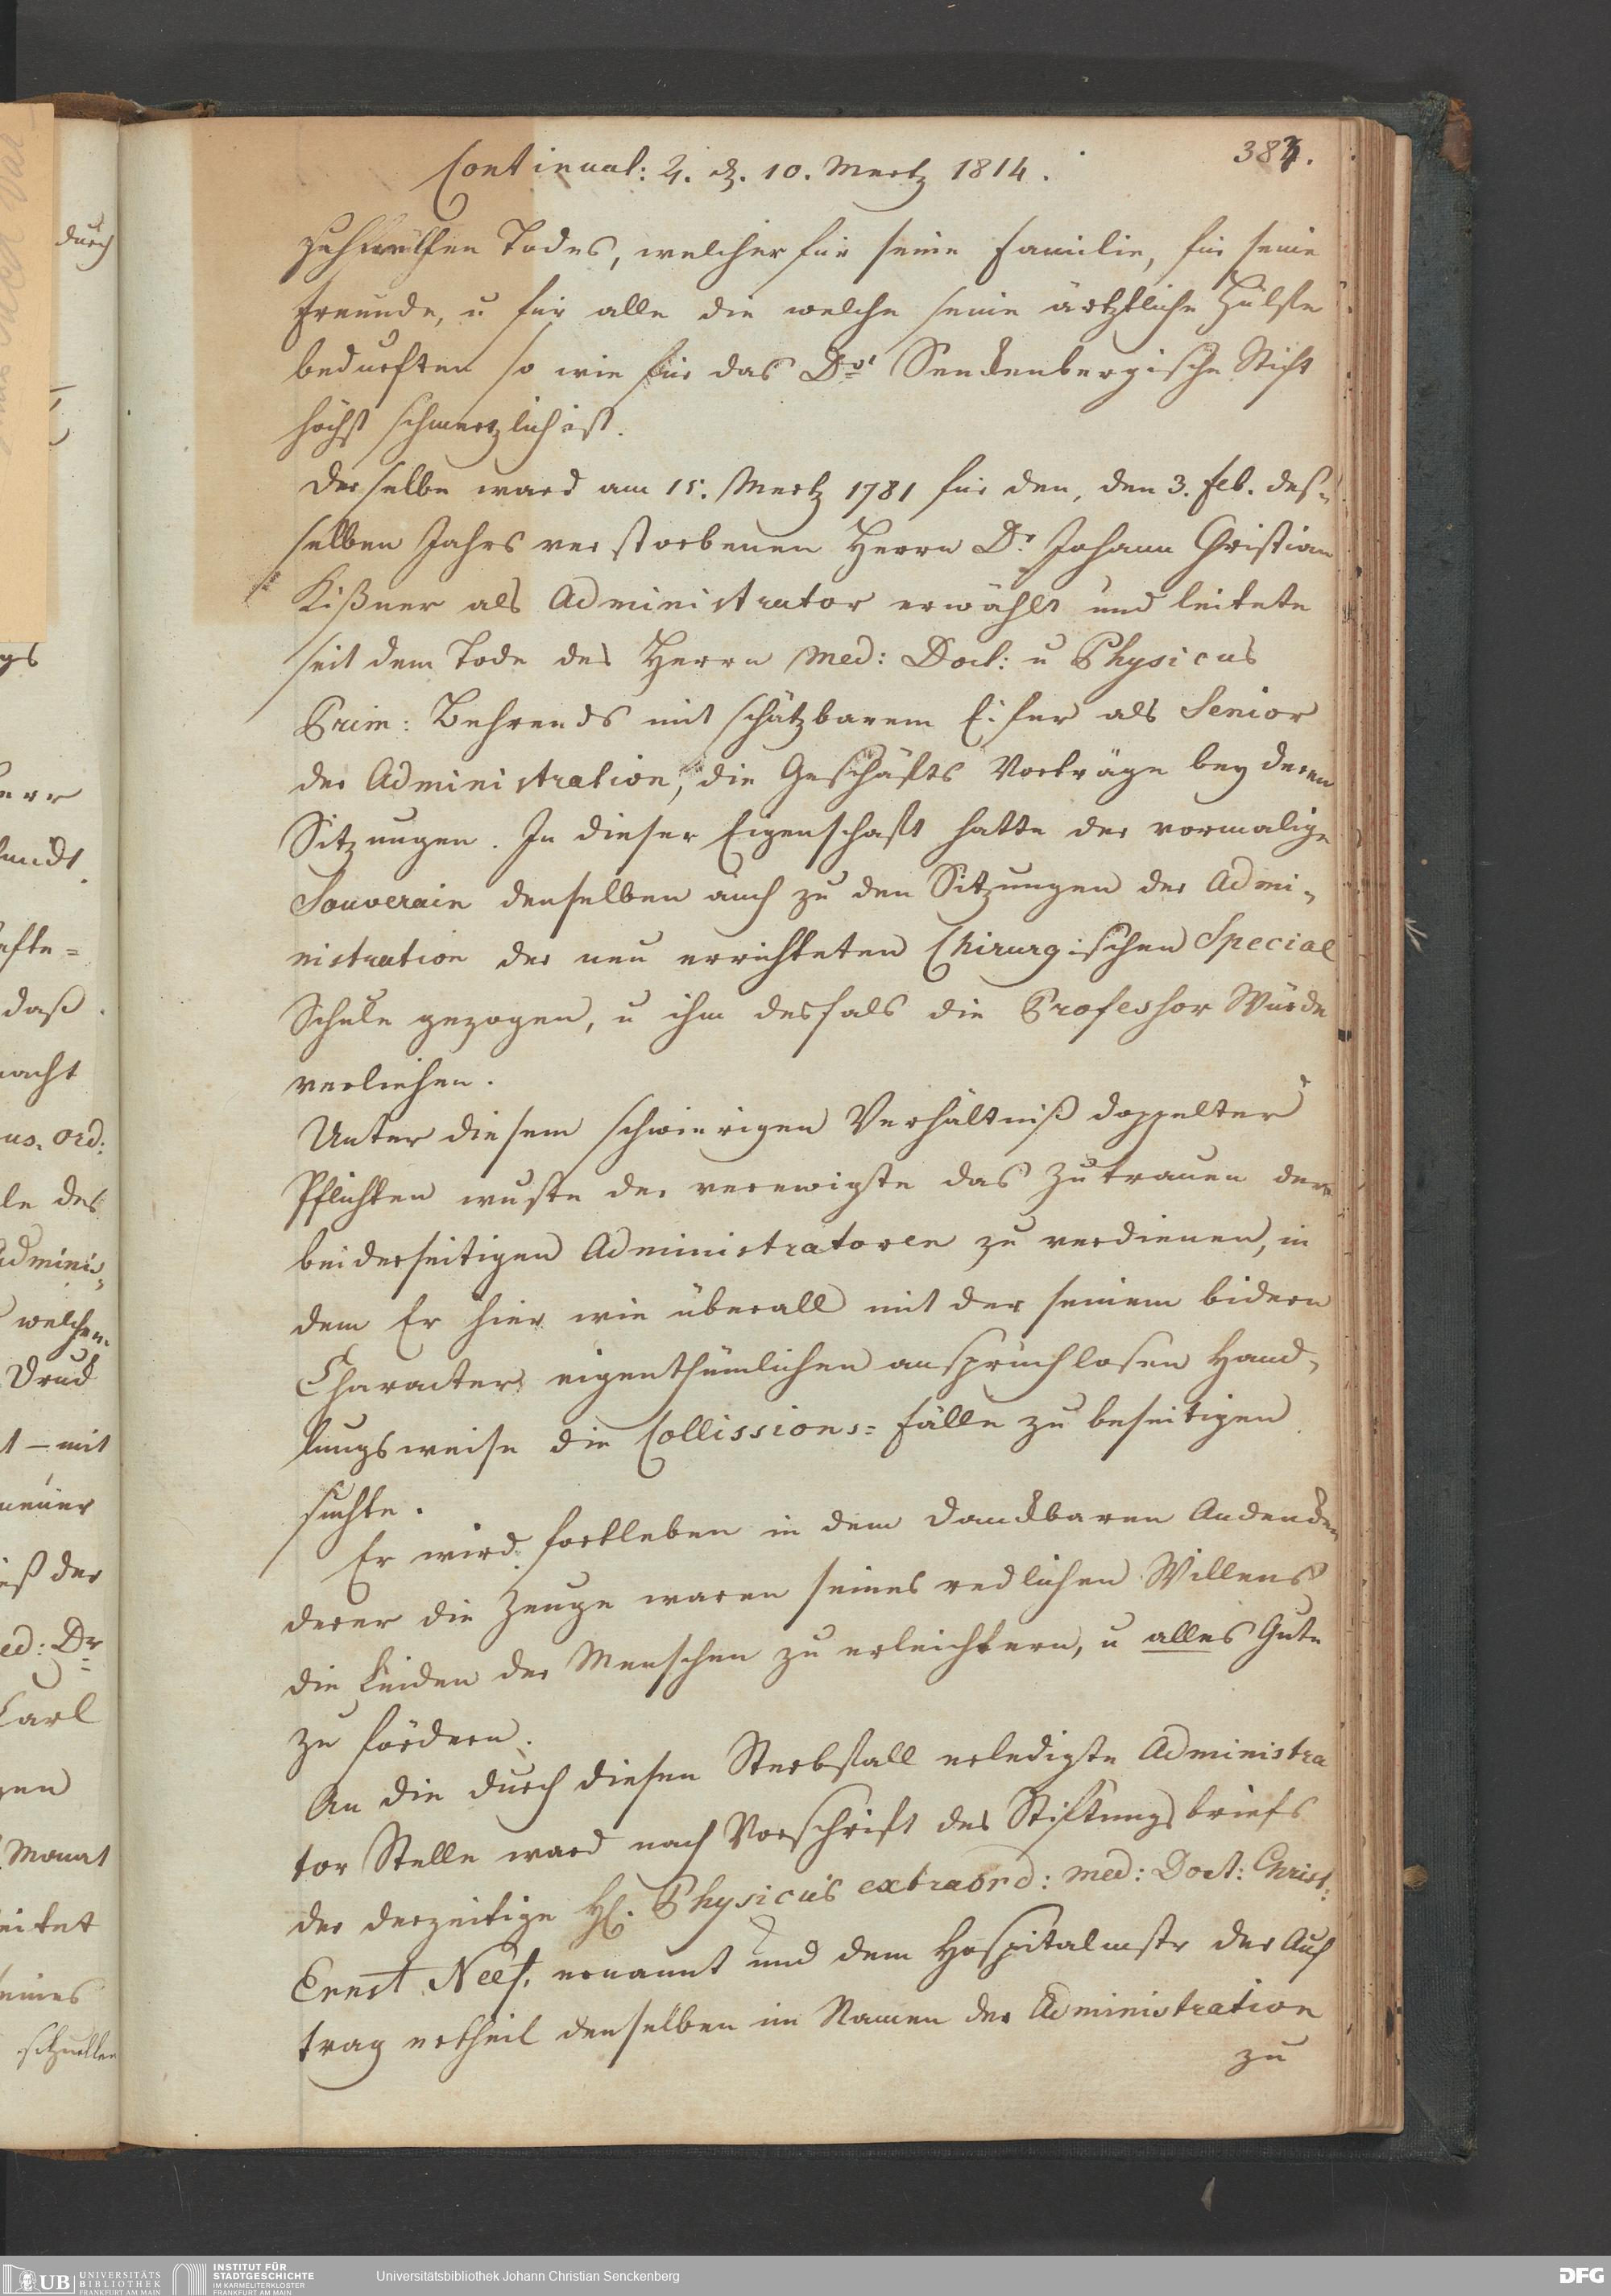 Continuat: 4. d. 10. Mertz 1814.
383.
Todes, welcher für seine Familie, für seine
Freunde, u für alle die welche seine ärtztliche Hülfe
bedurften so wie für das Dr Senckenbergische Stift
höchst schmertzlich ist.
Derselbe ward am 15. Mertz 1781 für den, den 3. Feb. des-
selben Jahrs verstorbenen Herrn Dr Johann Christian
Kißner als Administrator erwählt und leitete
seit dem Tode des Herrn Med: Doct: u Physicus
Prim: Behrends mit schätzbarem Eifer als Senior
der Administration, die Geschäfts Vorträge bey deren
Sitzungen. In dieser Eigenschaft hatte der vormalige
Souverain denselben auch zu den Sitzungen der Admi-
nistration der neu errichteten Chirurgischen Special
Schule gezogen, u ihm desfals die Professor Würde
verliehen.
Unter diesem schwierigen Verhältniß doppelter
Pflichten wuste der verewigte das Zutrauen der
beiderseitigen Administratoren zu verdienen, in
dem Er hier wie überall mit der seinem bidern
Character eigenthümlichen anspruchlosen Hand-
lungsweise die Collissions-fälle zu beseitigen
suchte.
Er wird fortleben in dem danckbaren Andencken
derer die Zeuge waren seines redlichen Willens
die Leiden der Menschen zu erleichtern, u alles Gute
zu fördern.
An die durch diesen Sterbfall erledigte Administra
tor Stelle ward nach Vorschrift des Stiftungsbriefs
der derzeitige H. Physicus extraord: med: Doct: Christ:
Ernst Neef, ernannt und dem Hospitalmstr der Auf
trag ertheil denselben im Namen der Administration
zu
durch
gs
daß
us. ord:
le des
welchen
t – mit
neuer
iß der
ed: Dr
Carl
Monat
eitet
eines
UB UNIVERSITÄTS BIBLIOTHEK FRANKFURT AM MAIN
INSTITUT FÜR STADTGESCHICHTE IM KARMELITERKLOSTER FRANKFURT AM MAIN
Universitätsbibliothek Johann Christian Senckenberg
DFG